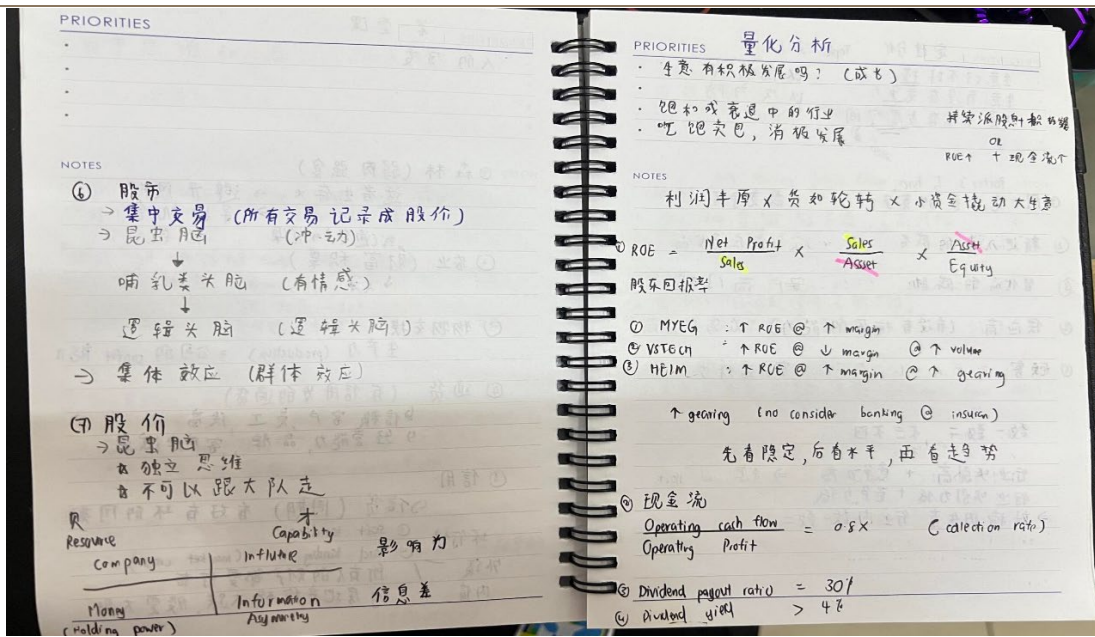 PRIORITIES
NOTES
⑥ 股市
→ 集中交易 (所有交易记录成股价)
→ 昆虫脑 (冲动)
↓
哺乳类头脑 (有情感)
↓
逻辑头脑 (逻辑头脑)
→ 集体效应 (群体效应)
⑦ 股价
→ 昆虫脑
独立思维
不可以跟大队走
财 才
Resource Capability
Company 影响力
Money Information 信息差
(Holding power) Asymmetry
PRIORITIES 量化分析
· 生意有积极发展吗? (成长)
· 饱和或衰退中的行业
· 吃饱卖包, 消极发展
持续派股息
OR
ROE↑ + 现金流个
NOTES
利润丰厚 x 货如轮转 x 小资金撬动大生意
① ROE = Net Profit / Sales x Sales / Asset x Asset / Equity
股东回报率
① MYEG : ↑ ROE @ ↑ margin
② VSTECH : ↑ ROE @ ↓ margin @ ↑ volume
③ HEIM : ↑ ROE @ ↑ margin @ ↑ gearing
↑ gearing (no consider banking @ insuran)
先看稳定, 后看水平, 再看趋势
② 现金流
Operating cash flow / Operating Profit = 0.8x (collection ratio)
③ Dividend payout ratio = 30%
④ Dividend yield > 4%